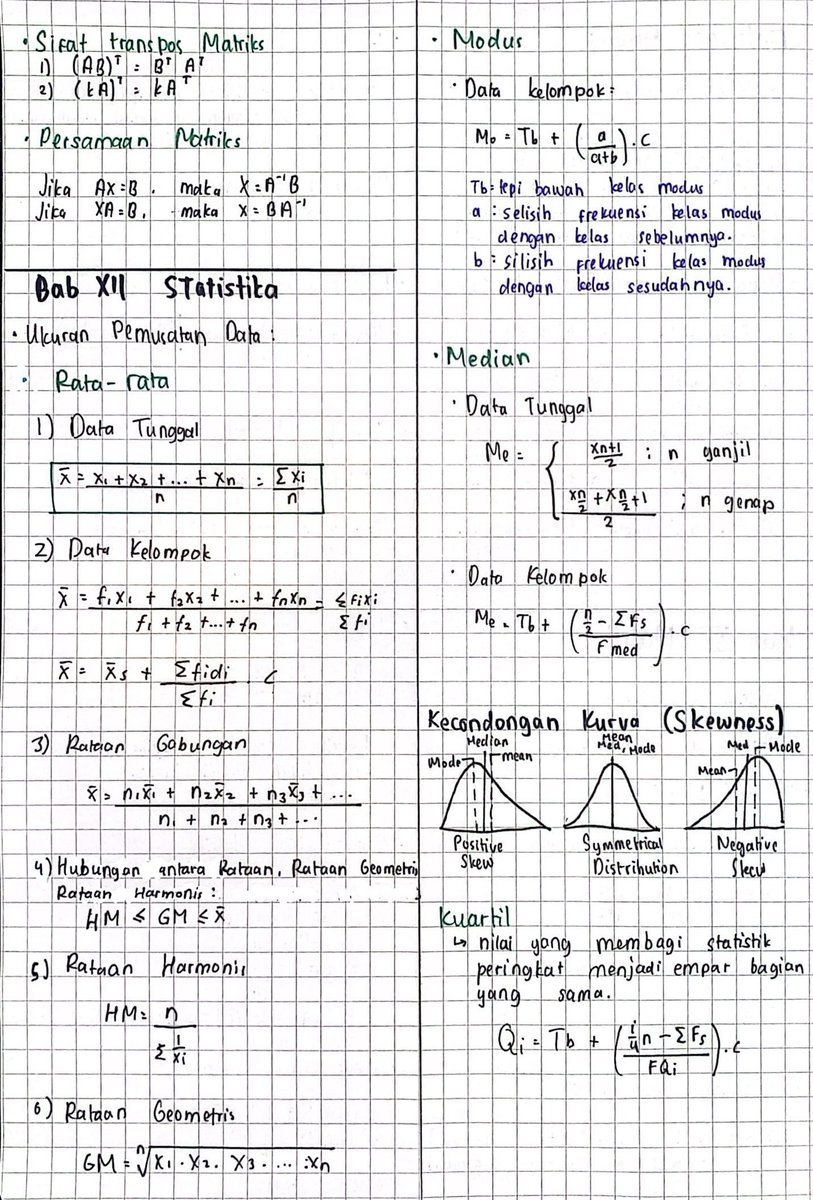 • Sifat transpos Matriks
1) (AB)ᵀ = Bᵀ Aᵀ
2) (kA)ᵀ = kAᵀ
• Persamaan Matriks
Jika AX = B, maka X = A⁻¹B
Jika XA = B, maka X = BA⁻¹
Bab XII Statistika
• Ukuran Pemusatan Data :
• Rata-rata
1) Data Tunggal
x̄ = (x₁ + x₂ + ... + xₙ)/n = Σxi/n
2) Data Kelompok
x̄ = (f₁x₁ + f₂x₂ + ... + fₙxₙ)/(f₁ + f₂ + ... + fₙ) = Σfixi/Σfi
x̄ = x̄s + Σfidi/Σfi . c
3) Rataan Gabungan
x̄ = (n₁x̄₁ + n₂x̄₂ + n₃x̄₃ + ...)/(n₁ + n₂ + n₃ + ...)
4) Hubungan antara Rataan, Rataan Geometris
Rataan Harmonis :
HM ≤ GM ≤ x̄
5) Rataan Harmonis
HM = n/(Σ 1/xi)
6) Rataan Geometris
GM = ⁿ√(x₁ . x₂ . x₃ . ... : xₙ)
• Modus
• Data kelompok =
Mo = Tb + (a/(a+b)) . c
Tb = tepi bawah kelas modus
a : selisih frekuensi kelas modus
dengan kelas sebelumnya.
b : silisih frekuensi kelas modus
dengan kelas sesudahnya.
• Median
• Data Tunggal
Me = { xn+1/2 ; n ganjil
(xn/2 + xn/2+1)/2 ; n genap
• Data Kelompok
Me = Tb + ((n/2 − ΣFs)/Fmed) . c
Kecondongan Kurva (Skewness)
Mode Median mean
Positive
Skew
Mean
Med, Mode
Symmetrical
Distribution
Mean Med Mode
Negative
Skew
Kuartil
↳ nilai yang membagi statistik
peringkat menjadi empar bagian
yang sama.
Qi = Tb + ((i/4 n − ΣFs)/FQi) . c